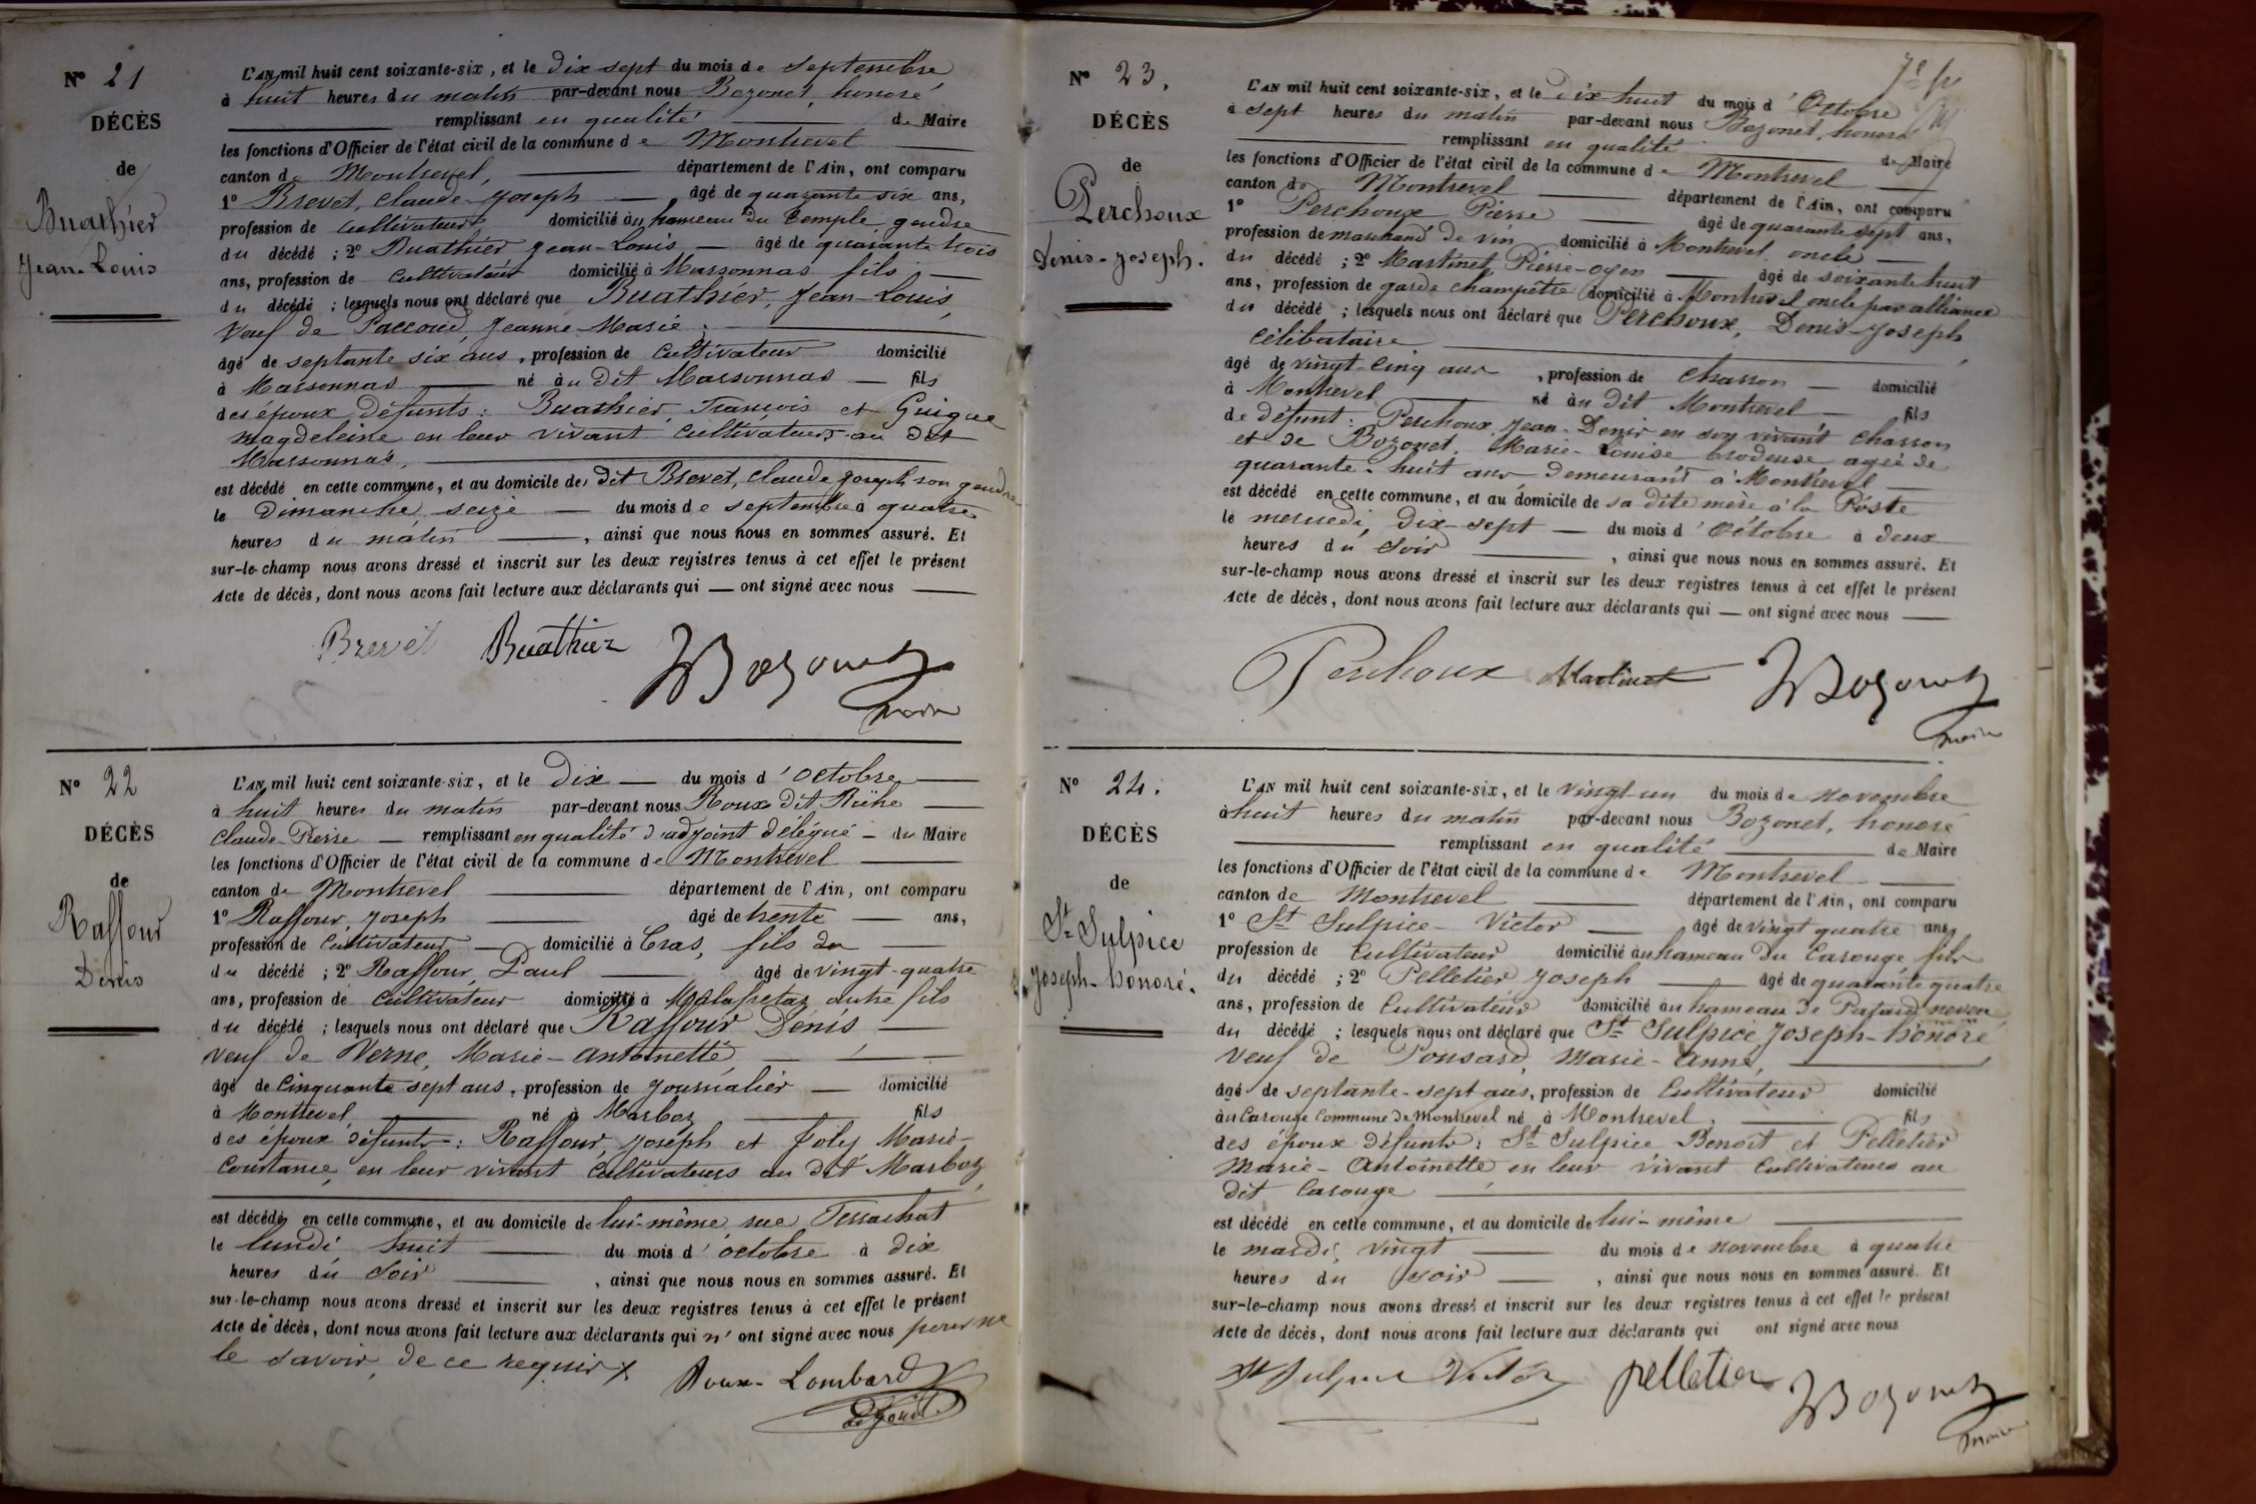 N° 21
DÉCÈS
de
Buathier
Jean-Louis
L'AN mil huit cent soixante-six, et le dix sept du mois de Septembre
à huit heures du matin par-devant nous Bozonet, honoré
remplissant en qualité de Maire
les fonctions d'Officier de l'état civil de la commune de Montrevel
canton de Montrevel, département de l'Ain, ont comparu
1° Brevet, Claude Joseph âgé de quarante six ans,
profession de cultivateur domicilié au hameau du Temple, gendre
du décédé ; 2° Buathier Jean-Louis âgé de quarante trois
ans, profession de cultivateur domicilié à Marsonnas fils
du décédé ; lesquels nous ont déclaré que Buathier, Jean-Louis,
veuf de Paccoud, Jeanne-Marie,
âgé de septante six ans, profession de cultivateur domicilié
à Marsonnas né au dit Marsonnas fils
des époux défunts : Buathier François et Guigue
magdeleine en leur vivant cultivateurs au dit
Marsonnas,
est décédé en cette commune, et au domicile de dit Brevet, Claude Joseph son gendre
le dimanche seize du mois de septembre à quatre
heures du matin, ainsi que nous nous en sommes assuré. Et
sur-le-champ nous avons dressé et inscrit sur les deux registres tenus à cet effet le présent
Acte de décès, dont nous avons fait lecture aux déclarants qui — ont signé avec nous
Brevet Buathier HBozonet
maire
N° 22
DÉCÈS
de
Raffour
Denis
L'AN mil huit cent soixante-six, et le dix du mois d'octobre
à huit heures du matin par-devant nous Roux dit Riche
Claude-Pierre remplissant en qualité d'adjoint délégué du Maire
les fonctions d'Officier de l'état civil de la commune de Montrevel
canton de Montrevel département de l'Ain, ont comparu
1° Raffour, Joseph âgé de trente ans,
profession de cultivateur domicilié à Cras, fils du
du décédé ; 2° Raffour, Paul âgé de vingt-quatre
ans, profession de cultivateur domicilié à Malafretaz autre fils
du décédé ; lesquels nous ont déclaré que Raffour Denis
veuf de Verne, Marie-Antoinette
âgé de cinquante sept ans, profession de journalier domicilié
à Montrevel, né à Marboz fils
des époux défunts : Raffour, Joseph et Joly Marie-
Constance, en leur vivant cultivateurs au dit Marboz
est décédé en cette commune, et au domicile de lui-même rue
le lundi huit du mois d'octobre à dix
heures du soir, ainsi que nous nous en sommes assuré. Et
sur-le-champ nous avons dressé et inscrit sur les deux registres tenus à cet effet le présent
Acte de décès, dont nous avons fait lecture aux déclarants qui n'ont signé avec nous pour ne
le savoir de ce requis
Roux-Lombard
N° 23.
DÉCÈS
de
Perchoux
Denis-Joseph.
L'AN mil huit cent soixante-six, et le dix-huit du mois d'Octobre
à sept heures du matin par-devant nous Bozonet, honoré
remplissant en qualité de Maire
les fonctions d'Officier de l'état civil de la commune de Montrevel
canton de Montrevel département de l'Ain, ont comparu
1° Perchoux Pierre âgé de quarante sept ans,
profession de marchand de vin domicilié à Montrevel oncle
du décédé ; 2° Martinet, Pierre-oyen âgé de soixante huit
ans, profession de garde champêtre domicilié à Montrevel oncle par alliance
du décédé ; lesquels nous ont déclaré que Perchoux, Denis-Joseph
célibataire
âgé de vingt-cinq ans, profession de charron domicilié
à Montrevel né au dit Montrevel fils
de défunt : Perchoux Jean-Denis en son vivant charron
et de Bozonet, Marie-Louise brodeuse agée de
quarante-huit ans demeurant à Montrevel
est décédé en cette commune, et au domicile de sa dite mère à la Poste
le mercredi dix-sept du mois d'octobre à deux
heures du soir, ainsi que nous nous en sommes assuré. Et
sur-le-champ nous avons dressé et inscrit sur les deux registres tenus à cet effet le présent
Acte de décès, dont nous avons fait lecture aux déclarants qui — ont signé avec nous
Perchoux Martinet HBozonet
maire
N° 24.
DÉCÈS
de
St Sulpice
Joseph-honoré.
L'AN mil huit cent soixante-six, et le vingt-un du mois de novembre
à huit heures du matin par-devant nous Bozonet, honoré
remplissant en qualité de Maire
les fonctions d'Officier de l'état civil de la commune de Montrevel
canton de Montrevel département de l'Ain, ont comparu
1° St Sulpice Victor âgé de vingt quatre ans,
profession de cultivateur domicilié au hameau du Carouge fils
du décédé ; 2° Pelletier Joseph âgé de quarante quatre
ans, profession de cultivateur domicilié au hameau de neveu
du décédé ; lesquels nous ont déclaré que St Sulpice, Joseph-honoré
veuf de Ponsard, Marie-Anne,
âgé de septante-sept ans, profession de cultivateur domicilié
au Carouge commune de Montrevel né à Montrevel, fils
des époux défunts : St Sulpice Benoit et Pelletier
Marie-Antoinette en leur vivant cultivateurs au
dit Carouge
est décédé en cette commune, et au domicile de lui-même
le mardi vingt du mois de novembre à quatre
heures du soir, ainsi que nous nous en sommes assuré. Et
sur-le-champ nous avons dressé et inscrit sur les deux registres tenus à cet effet le présent
Acte de décès, dont nous avons fait lecture aux déclarants qui ont signé avec nous
St Sulpice Victor pelletier HBozonet
maire